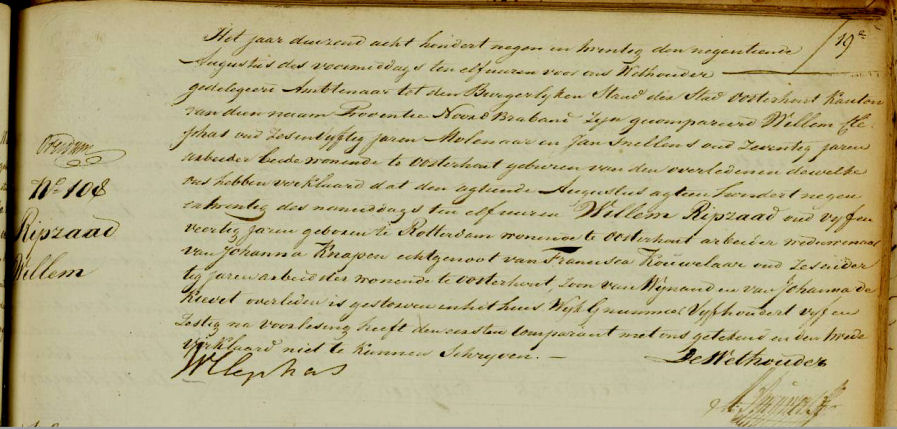 19e
Het jaar duizend acht hondert negen en twintig den negentiende
Augustus des voormiddags ten elf uuren voor ons Wethouder
gedelegeert Ambtenaar tot den Burgerlyken Stand der Stad Oosterhout Kanton
van dien naam Provintie Noord Braband Zyn gecompareerd Willem Cle-
phas oud Zesenvyftig jaren Molenaar en Jan Snellens oud Zeventig jaren
arbeider beide wonende te Oosterhout geburen van den overledenen dewelke
ons hebben verklaard dat den agtiende Augustus agtien hondert negen
entwintig des namiddags ten elf uuren Willem Ripzaad oud vyf en
veertig jaren geboren te Rotterdam wonende te Oosterhout arbeider weduwenaar
van Johanna Knapen echtgenoot van Francisca Kouwelaar oud Zesender
tig jaren arbeidster wonende te Oosterhout, Zoon van Wynand en van Johanna de
Kievet overleden is gestorven in het huis Wyk G nummer Vyfhondert vyf en
Zestig na voorlezing heeft den eersten Comparant met ons getekend en den twede
verklaard niet te kunnen Schryven. —
De Wethouder
WClephas
Overlyden
No 108
Ripzaad
Willem